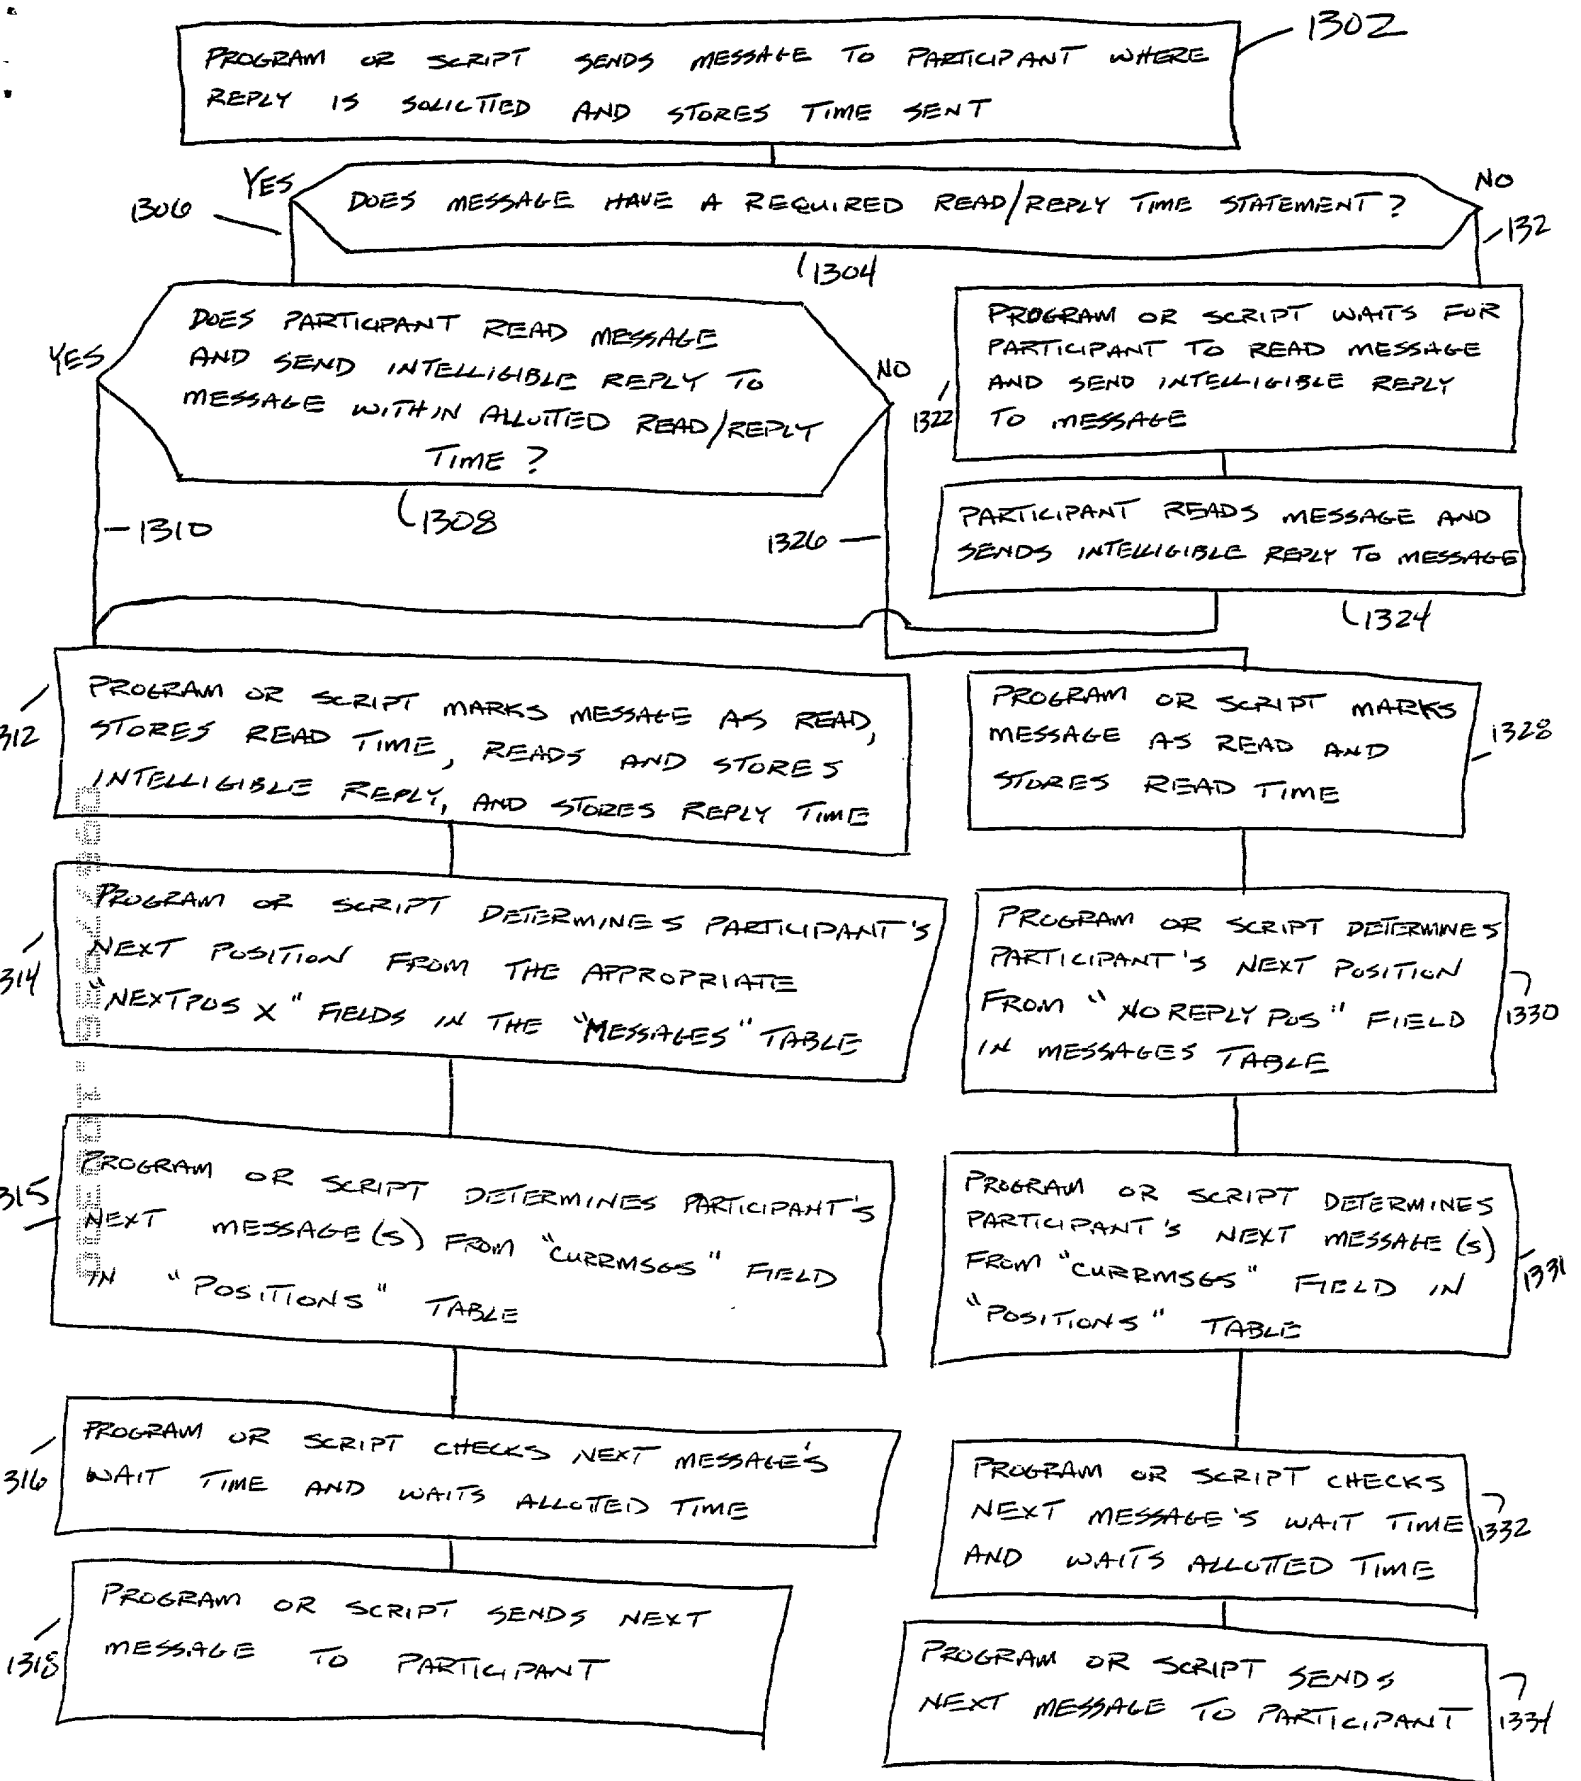 1302
PROGRAM OR SCRIPT SENDS MESSAGE TO PARTICIPANT WHERE
REPLY IS SOLICTIED AND STORES TIME SENT
YES
NO
1306
DOES MESSAGE HAVE A REQUIRED READ/REPLY TIME STATEMENT?
132
1304
DOES PARTICIPANT READ MESSAGE
AND SEND INTELLIGIBLE REPLY TO
MESSAGE WITHIN ALLOTTED READ/REPLY
TIME?
YES
NO
1308
1310
PROGRAM OR SCRIPT WAITS FOR
PARTICIPANT TO READ MESSAGE
AND SEND INTELLIGIBLE REPLY
TO MESSAGE
1322
PARTICIPANT READS MESSAGE AND
SENDS INTELLIGIBLE REPLY TO MESSAGE
1326
1324
PROGRAM OR SCRIPT MARKS MESSAGE AS READ,
STORES READ TIME, READS AND STORES
INTELLIGIBLE REPLY, AND STORES REPLY TIME
312
PROGRAM OR SCRIPT MARKS
MESSAGE AS READ AND
STORES READ TIME
1328
PROGRAM OR SCRIPT DETERMINES PARTICIPANT'S
NEXT POSITION FROM THE APPROPRIATE
"NEXTPOS X" FIELDS IN THE "MESSAGES" TABLE
314
PROGRAM OR SCRIPT DETERMINES
PARTICIPANT'S NEXT POSITION
FROM "NOREPLY POS" FIELD
IN MESSAGES TABLE
1330
PROGRAM OR SCRIPT DETERMINES PARTICIPANT'S
NEXT MESSAGE(S) FROM "CURRMSGS" FIELD
IN "POSITIONS" TABLE
315
PROGRAM OR SCRIPT DETERMINES
PARTICIPANT'S NEXT MESSAGE(S)
FROM "CURRMSGS" FIELD IN
"POSITIONS" TABLE
1331
PROGRAM OR SCRIPT CHECKS NEXT MESSAGE'S
WAIT TIME AND WAITS ALLOTTED TIME
316
PROGRAM OR SCRIPT CHECKS
NEXT MESSAGE'S WAIT TIME
AND WAITS ALLOTTED TIME
1332
PROGRAM OR SCRIPT SENDS NEXT
MESSAGE TO PARTICIPANT
1318
PROGRAM OR SCRIPT SENDS
NEXT MESSAGE TO PARTICIPANT
1334